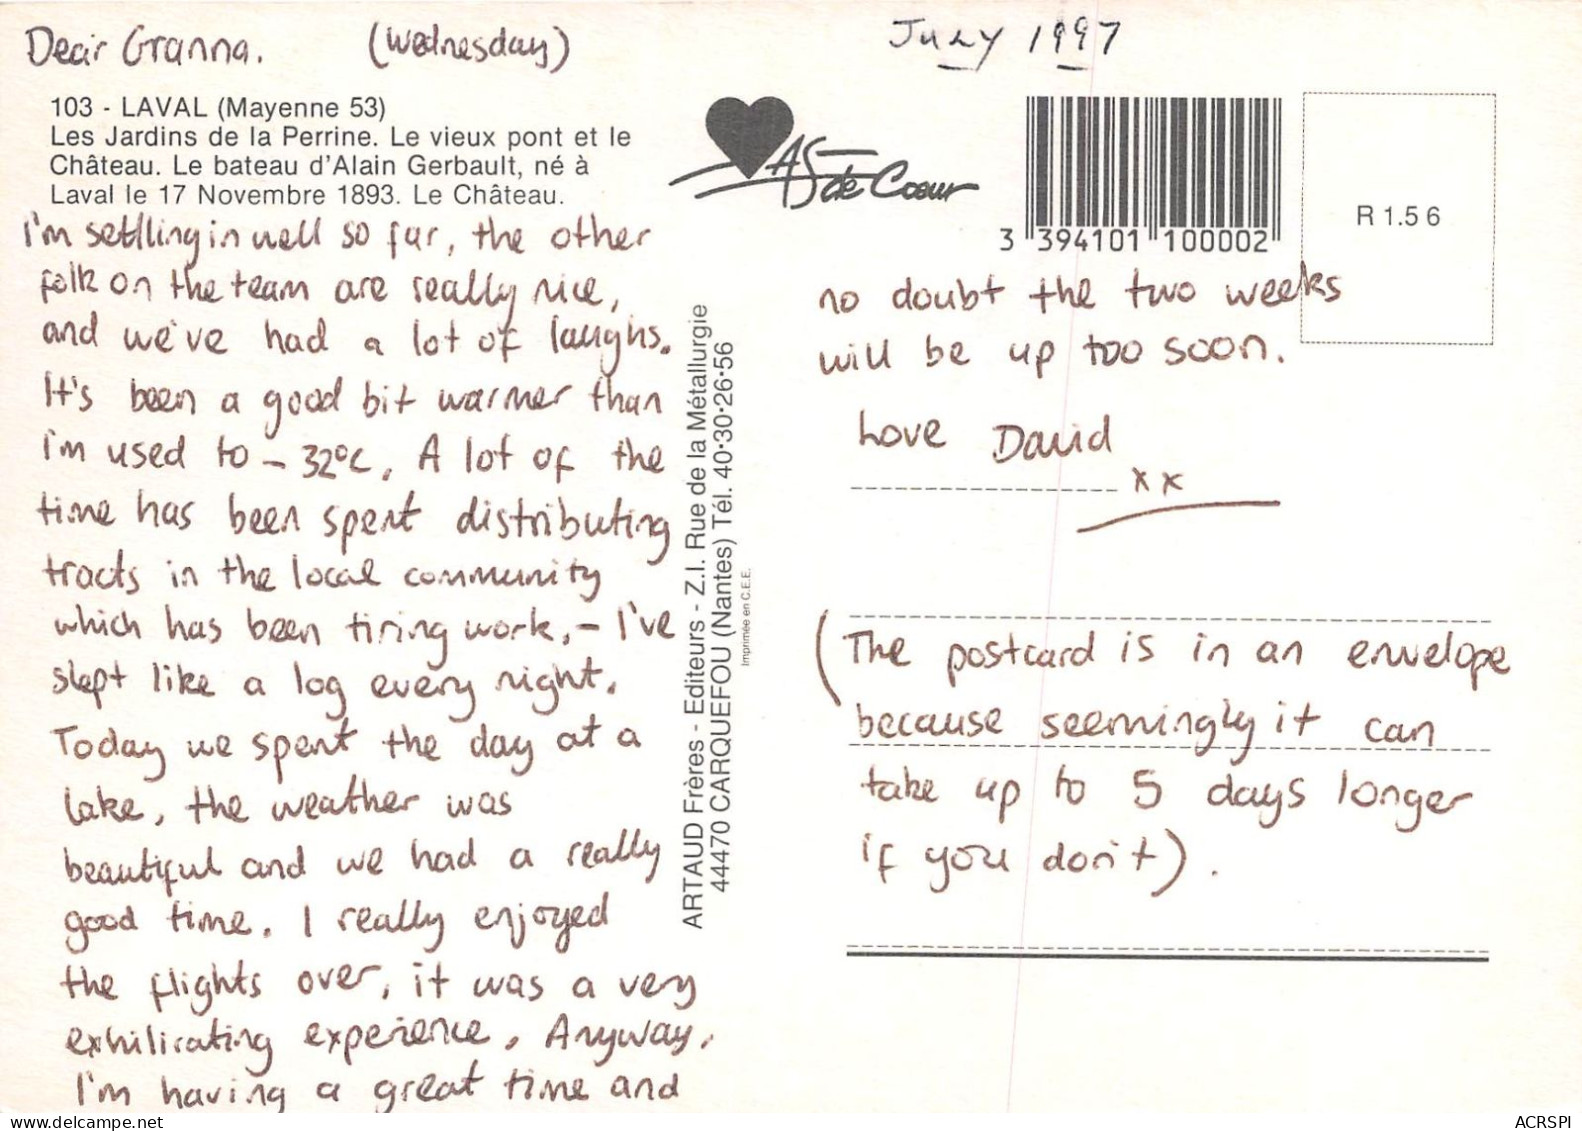 Dear Granna. (Wednesday)
July 1997
103 - LAVAL (Mayenne 53)
Les Jardins de la Perrine. Le vieux pont et le
Château. Le bateau d'Alain Gerbault, né à
Laval le 17 Novembre 1893. Le Château.
I'm settling in well so far, the other
folk on the team are really nice,
and we've had a lot of laughs.
It's been a good bit warmer than
I'm used to - 32°C. A lot of the
time has been spent distributing
tracts in the local community
which has been tiring work, - I've
slept like a log every night.
Today we spent the day at a
lake, the weather was
beautiful and we had a really
good time. I really enjoyed
the flights over, it was a very
exhilirating experience. Anyway,
I'm having a great time and
ARTAUD Frères - Editeurs - Z.I. Rue de la Métallurgie
44470 CARQUEFOU (Nantes) Tél. 40·30·26·56
Imprimée en C.E.E.
AS de Coeur
3 394101 100002
R 1.5 6
no doubt the two weeks
will be up too soon.
Love David
xx
(The postcard is in an envelope
because seemingly it can
take up to 5 days longer
if you don't).
ACRSPI